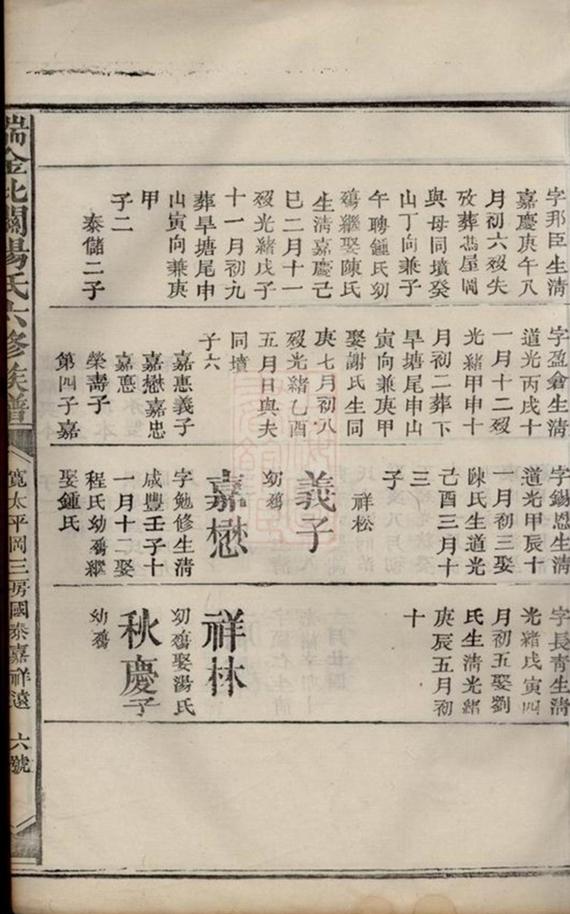 字邦臣生清
嘉慶庚午八
月初六歿失
攷葬嵩屋岡
與母同墳癸
山丁向兼子
午聘鍾氏幼
殤繼娶陳氏
生清嘉慶己
巳二月十一
歿光緒戊子
十一月初九
葬旱塘尾申
山寅向兼庚
甲
子二
泰儲二子
字盈倉生清
道光丙戌十
一月十二歿
光緒甲申十
月初二葬下
旱塘尾申山
寅向兼庚甲
娶謝氏生同
庚七月初八
歿光緒乙酉
五月日與夫
同墳
子六
嘉惠義子
嘉懋嘉忠
嘉憲
榮壽子
第四子嘉
字錫恩生清
道光甲辰十
一月初三娶
陳氏生道光
己酉三月十
三
子
祥松
義子
幼殤
嘉懋
字勉修生清
咸豐壬子十
一月十二娶
程氏幼殤繼
娶鍾氏
字長青生清
光緒戊寅四
月初五娶劉
氏生清光緒
庚辰五月初
十
祥林
幼殤娶湯氏
秋慶子
幼殤
瑞金北關楊氏六修族譜
寬太平岡三房國泰嘉祥遠
六號